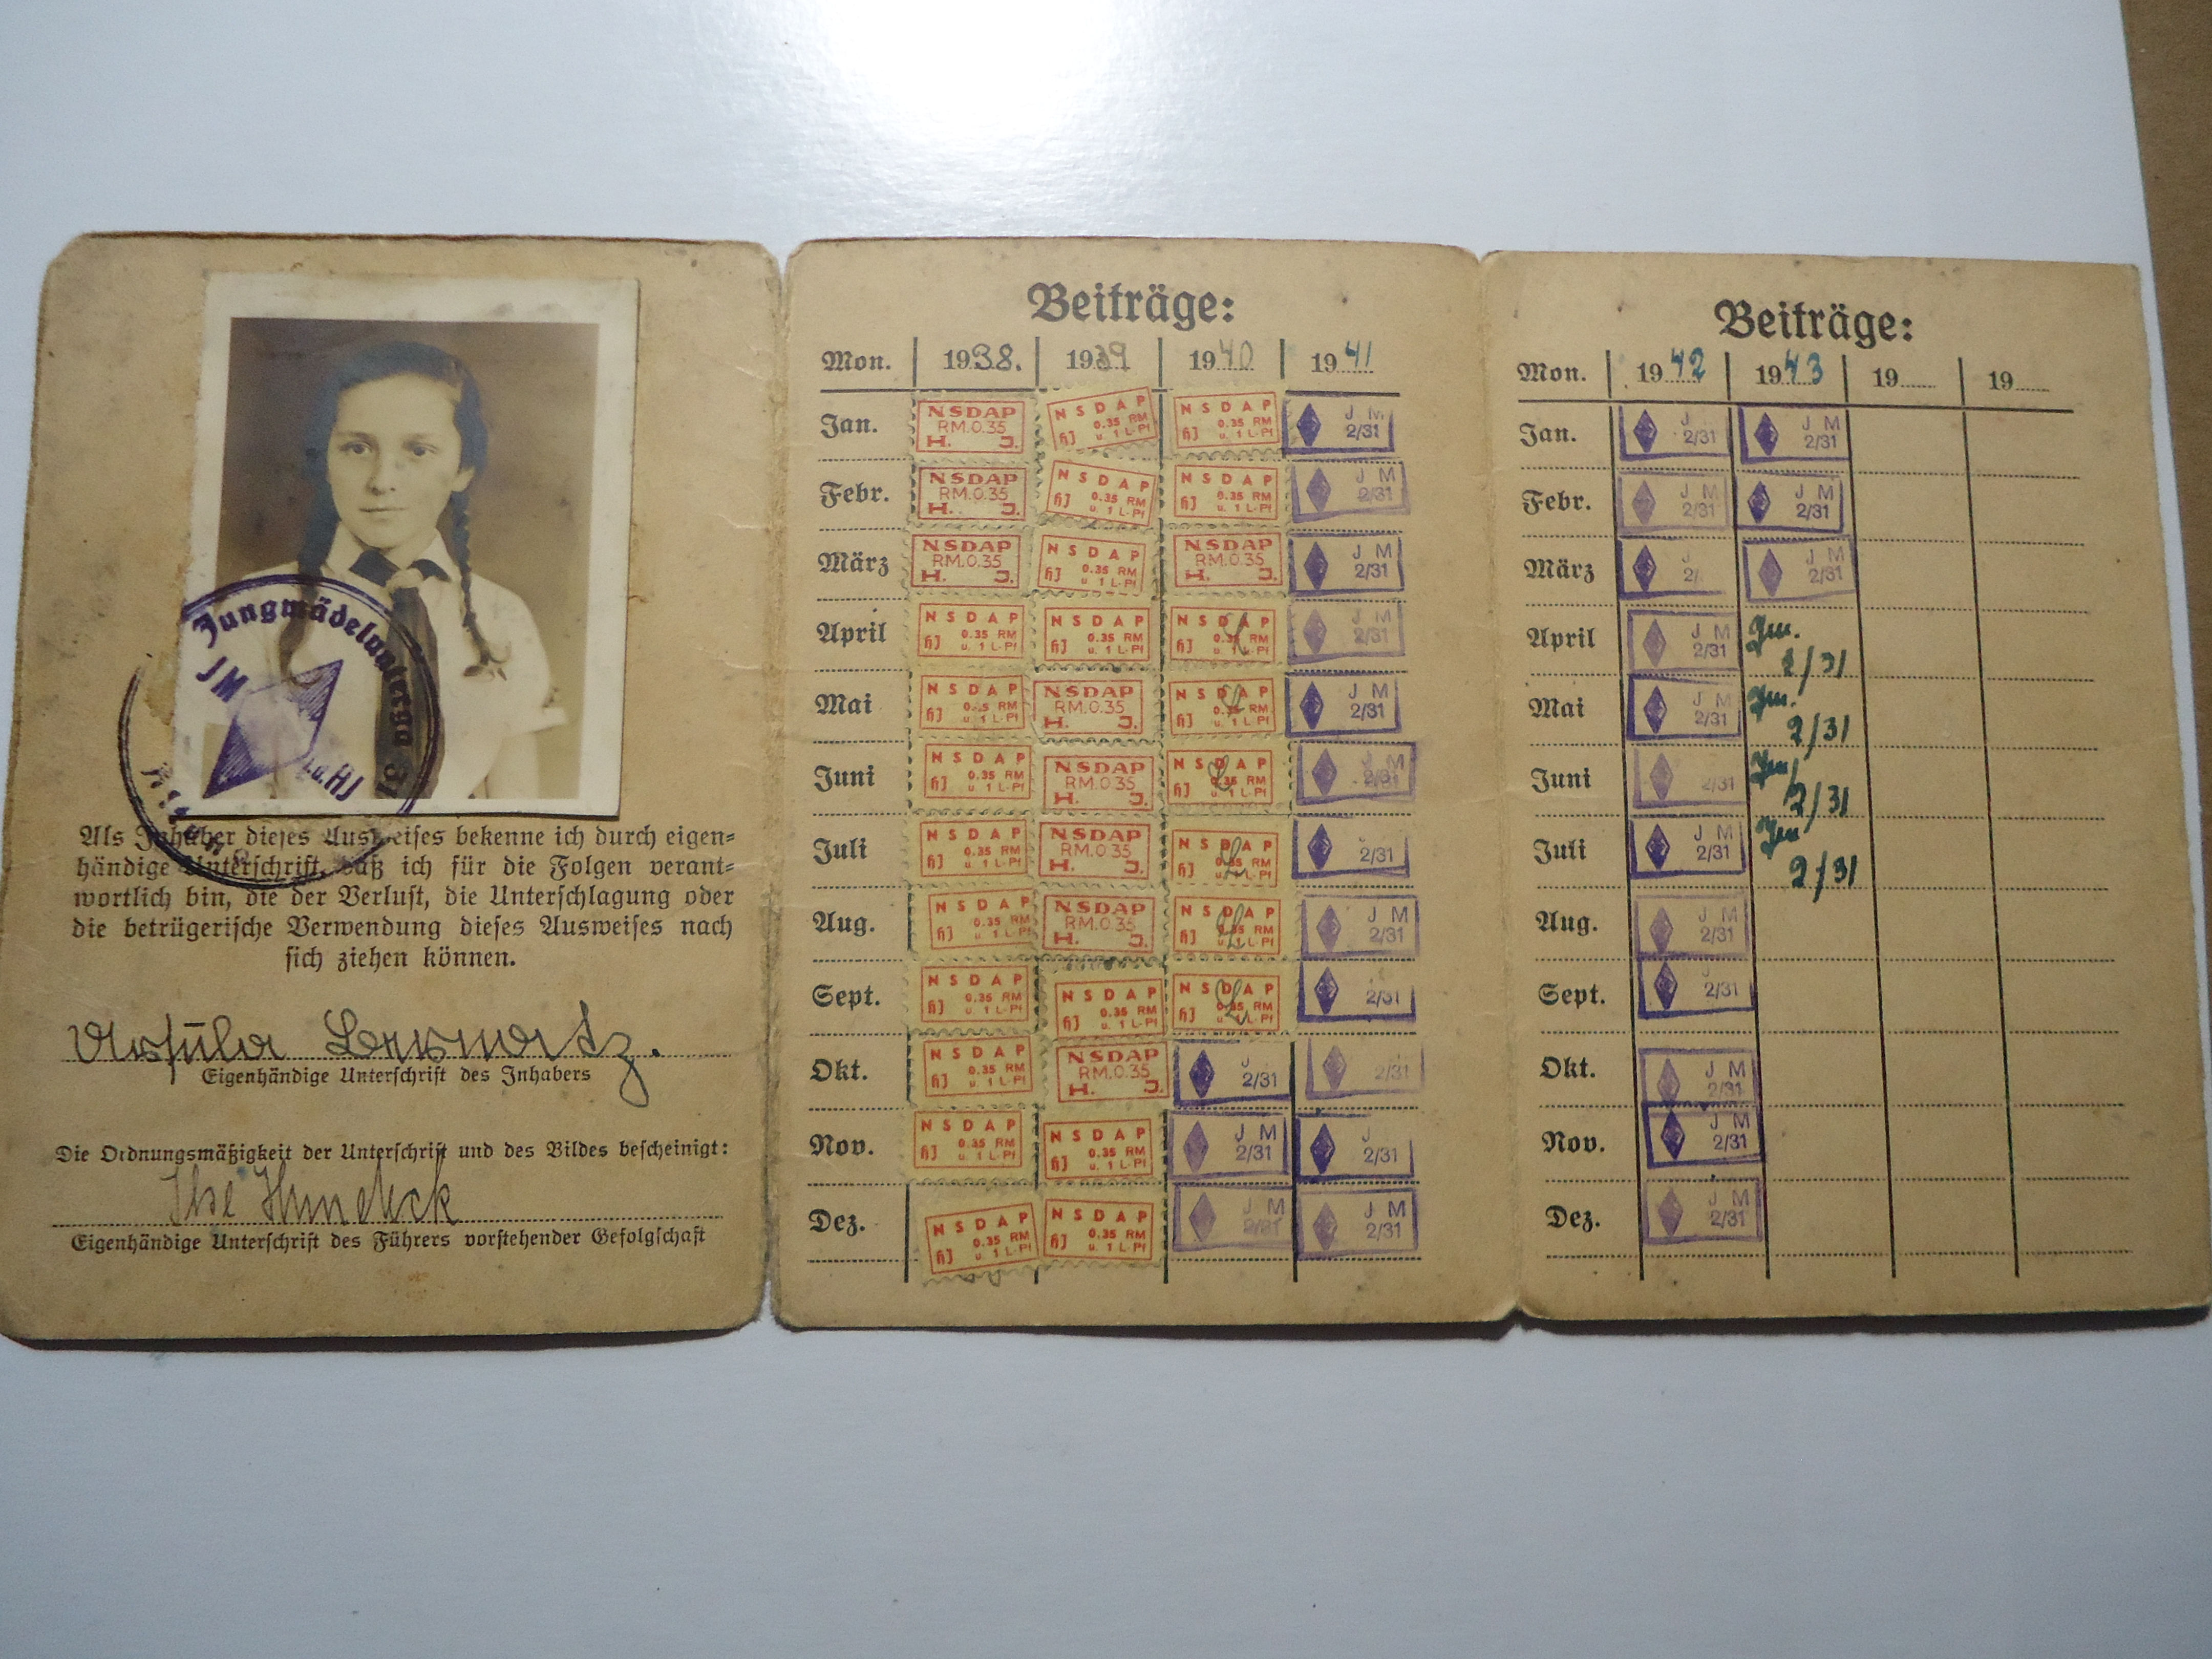 Jungmädeluntergau 31
JM
i.d. HJ
Als Inhaber dieses Ausweises bekenne ich durch eigen=
händige Unterschrift, daß ich für die Folgen verant=
wortlich bin, die der Verlust, die Unterschlagung oder
die betrügerische Verwendung dieses Ausweises nach
sich ziehen können.
Ursula
Eigenhändige Unterschrift des Inhabers
Die Ordnungsmäßigkeit der Unterschrift und des Bildes bescheinigt:
Ilse
Eigenhändige Unterschrift des Führers vorstehender Gefolgschaft
Beiträge:
Mon. 1938. 1939 1940 1941
Jan. NSDAP RM.0.35 H. J. NSDAP HJ 0.35 RM u. 1 L-Pf NSDAP HJ 0.35 RM u. 1 L-Pf J M 2/31
Febr. NSDAP RM.0.35 H. J. NSDAP HJ 0.35 RM u. 1 L-Pf NSDAP HJ 0.35 RM u. 1 L-Pf J M 2/31
März NSDAP RM.0.35 H. J. NSDAP HJ 0.35 RM u. 1 L-Pf NSDAP RM.0.35 H. J. J M 2/31
April NSDAP HJ 0.35 RM u. 1 L-Pf NSDAP HJ 0.35 RM u. 1 L-Pf NSDAP HJ 0.35 RM u. 1 L-Pf J M 2/31
Mai NSDAP HJ 0.35 RM u. 1 L-Pf NSDAP RM.0.35 H. J. NSDAP HJ 0.35 RM u. 1 L-Pf J M 2/31
Juni NSDAP HJ 0.35 RM u. 1 L-Pf NSDAP RM.0.35 H. J. NSDAP HJ 0.35 RM u. 1 L-Pf J M 2/31
Juli NSDAP HJ 0.35 RM u. 1 L-Pf NSDAP RM.0.35 H. J. NSDAP HJ 0.35 RM u. 1 L-Pf 2/31
Aug. NSDAP HJ 0.35 RM u. 1 L-Pf NSDAP RM.0.35 H. J. NSDAP HJ 0.35 RM u. 1 L-Pf J M 2/31
Sept. NSDAP HJ 0.35 RM u. 1 L-Pf NSDAP HJ 0.35 RM u. 1 L-Pf NSDAP HJ 0.35 RM u. 1 L-Pf 2/31
Okt. NSDAP HJ 0.35 RM u. 1 L-Pf NSDAP RM.0.35 H. J. J 2/31 2/31
Nov. NSDAP HJ 0.35 RM u. 1 L-Pf NSDAP HJ 0.35 RM u. 1 L-Pf J M 2/31 J 2/31
Dez. NSDAP HJ 0.35 RM u. 1 L-Pf NSDAP HJ 0.35 RM u. 1 L-Pf J M 2/31 J M 2/31
Beiträge:
Mon. 1942 1943 19 19
Jan. J 2/31 J M 2/31
Febr. J M 2/31 J M 2/31
März J 2/ J M 2/31
April J M 2/31 Jm. 2/31
Mai J M 2/31 Jm. 2/31
Juni 2/31 Jm. 2/31
Juli J M 2/31 Jm 2/31
Aug. J M 2/31
Sept. J 2/31
Okt. J M 2/31
Nov. J M 2/31
Dez. J M 2/31